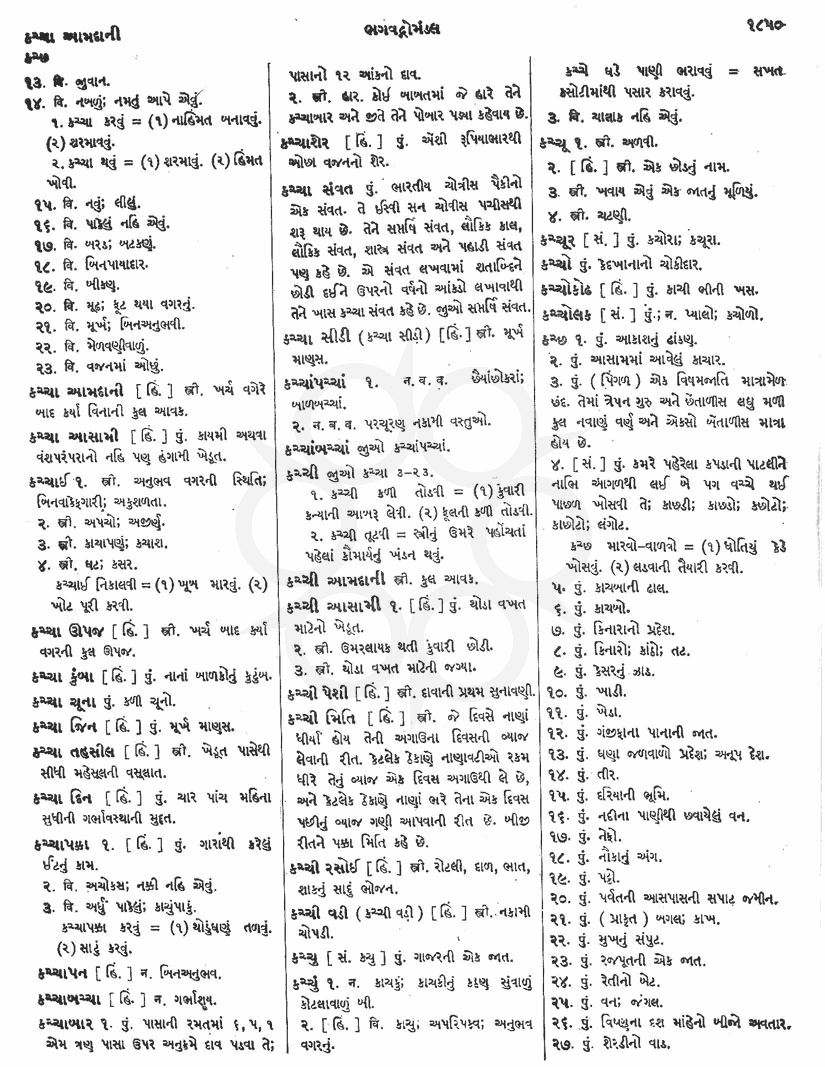 કચ્ચા આમદાની
ભગવદ્ગોમંડલ
૧૮૫૦
કચ્છ
૧૩. વિ. જુવાન.
૧૪. વિ. નબળું; નમતું આપે એવું.
૧. કચ્ચા કરવું = (૧) નાહિંમત બનાવવું.
(૨) શરમાવવું.
૨. કચ્ચા થવું = (૧) શરમાવું. (૨) હિંમત
ખોવી.
૧૫. વિ. નવું; લીલું.
૧૬. વિ. પાકેલું નહિ એવું.
૧૭. વિ. બરડ; બટકણું.
૧૮. વિ. બિનપાયાદાર.
૧૯. વિ. બીકણ.
૨૦. વિ. મૂઢ; કૂટ થયા વગરનું.
૨૧. વિ. મૂર્ખ; બિનઅનુભવી.
૨૨. વિ. મેળવણીવાળું.
૨૩. વિ. વજનમાં ઓછું.
કચ્ચા આમદાની [ હિં. ] સ્ત્રી. ખર્ચ વગેરે
બાદ કર્યા વિનાની કુલ આવક.
કચ્ચા આસામી [ હિં. ] પું. કાયમી અથવા
વંશપરંપરાનો નહિ પણ હંગામી ખેડૂત.
કચ્ચાઈ ૧. સ્ત્રી. અનુભવ વગરની સ્થિતિ;
બિનવાકેફગારી; અકુશળતા.
૨. સ્ત્રી. અપચો; અજીર્ણ.
૩. સ્ત્રી. કાચાપણું; કચાશ.
૪. સ્ત્રી. ઘટ; કસર.
કચ્ચાઈ નિકાલવી = (૧) ખૂબ મારવું. (૨)
ખોટ પૂરી કરવી.
કચ્ચા ઊપજ [ હિં. ] સ્ત્રી. ખર્ચ બાદ કર્યા
વગરની કુલ ઊપજ.
કચ્ચા કુંબા [ હિં. ] પું. નાનાં બાળકોનું કુટુંબ.
કચ્ચા ચૂના પું. કળી ચૂનો.
કચ્ચા જિન [ હિં. ] પું. મૂર્ખ માણસ.
કચ્ચા તહસીલ [ હિં. ] સ્ત્રી. ખેડૂત પાસેથી
સીધી મહેસૂલની વસૂલાત.
કચ્ચા દિન [ હિં. ] પું. ચાર પાંચ મહિના
સુધીની ગર્ભાવસ્થાની મુદ્દત.
કચ્ચાપક્કા ૧. [ હિં. ] પું. ગારાથી કરેલું
ઈંટનું કામ.
૨. વિ. અચોકસ; નક્કી નહિ એવું.
૩. વિ. અર્ધું પાકેલું; કાચુંપાકું.
કચ્ચાપક્કા કરવું = (૧) થોડુંઘણું તળવું.
(૨) સાટું કરવું.
કચ્ચાપન [ હિં. ] ન. બિનઅનુભવ.
કચ્ચાબચ્ચા [ હિં. ] ન. ગર્ભાશય.
કચ્ચાબાર ૧. પું. પાસાની રમતમાં ૬, ૫, ૧
એમ ત્રણ પાસા ઉપર અનુક્રમે દાવ પડવા તે;
પાસાનો ૧૨ આંકનો દાવ.
૨. સ્ત્રી. હાર. કોઈ બાબતમાં જે હારે તેને
કચ્ચાબાર અને જીતે તેને પોબાર પડ્યા કહેવાય છે.
કચ્ચાશેર [ હિં. ] પું. એંશી રૂપિયાભારથી
ઓછા વજનનો શેર.
કચ્ચા સંવત પું. ભારતીય ચોત્રીસ પૈકીનો
એક સંવત. તે ઈસ્વી સન ચોવીસ પચીસથી
શરૂ થાય છે. તેને સપ્તર્ષિ સંવત, લૌકિક કાલ,
લૌકિક સંવત, શાસ્ત્ર સંવત અને પહાડી સંવત
પણ કહે છે. એ સંવત લખવામાં શતાબ્દિને
છોડી દઈને ઉપરનો વર્ષનો આંકડો લખાવાથી
તેને ખાસ કચ્ચા સંવત કહે છે. જુઓ સપ્તર્ષિ સંવત.
કચ્ચા સીડી (કચ્ચા સીડી) [ હિં. ] સ્ત્રી. મૂર્ખ
માણસ.
કચ્ચાંપચ્ચાં ૧. ન. બ. વ. છૈયાંછોકરાં;
બાળબચ્ચાં.
૨. ન. બ. વ. પરચૂરણ નકામી વસ્તુઓ.
કચ્ચાંબચ્ચાં જુઓ કચ્ચાંપચ્ચાં.
કચ્ચી જુઓ કચ્ચા ૩–૨૩.
૧. કચ્ચી કળી તોડવી = (૧) કુંવારી
કન્યાની આબરૂ લેવી. (૨) ફૂલની કળી તોડવી.
૨. કચ્ચી તૂટવી = સ્ત્રીનું ઉંમરે પહોંચતાં
પહેલાં કૌમાર્યનું ખંડન થવું.
કચ્ચી આમદાની સ્ત્રી. કુલ આવક.
કચ્ચી આસામી ૧. [ હિં. ] પું. થોડા વખત
માટેનો ખેડૂત.
૨. સ્ત્રી. ઉમરલાયક થતી કુંવારી છોડી.
૩. સ્ત્રી. થોડા વખત માટેની જગ્યા.
કચ્ચી પેશી [ હિં. ] સ્ત્રી. દાવાની પ્રથમ સુનાવણી.
કચ્ચી મિતિ [ હિં. ] સ્ત્રી. જે દિવસે નાણાં
ધીર્યાં હોય તેની અગાઉના દિવસની વ્યાજ
લેવાની રીત. કેટલેક ઠેકાણે નાણાવટીઓ રકમ
ધીરે તેનું વ્યાજ એક દિવસ અગાઉથી લે છે,
અને કેટલેક ઠેકાણે નાણાં ભરે તેના એક દિવસ
પછીનું વ્યાજ ગણી આપવાની રીત છે. બીજી
રીતને પક્કા મિતિ કહે છે.
કચ્ચી રસોઈ [ હિં. ] સ્ત્રી. રોટલી, દાળ, ભાત,
શાકનું સાદું ભોજન.
કચ્ચી વડી (કચ્ચી વડી) [ હિં. ] સ્ત્રી. નકામી
ચોપડી.
કચ્ચુ [ સં. કચુ ] પું. ગાજરની એક જાત.
કચ્ચું ૧. ન. કાચકું; કાચકીનું કઠણ સુંવાળું
કોટલાવાળું બી.
૨. [ હિં. ] વિ. કાચું; અપરિપક્વ; અનુભવ
વગરનું.
કચ્ચે ઘડે પાણી ભરાવવું = સખત
કસોટીમાંથી પસાર કરાવવું.
૩. વિ. ચાલાક નહિ એવું.
કચ્ચૂ ૧. સ્ત્રી. અળવી.
૨. [ હિં. ] સ્ત્રી. એક છોડનું નામ.
૩. સ્ત્રી. ખવાય એવું એક જાતનું મૂળિયું.
૪. સ્ત્રી. ચટણી.
કચ્ચૂર [ સં. ] પું. કચોરા; કચૂરા.
કચ્ચો પું. કેદખાનાનો ચોકીદાર.
કચ્ચોકોઢ [ હિં. ] પું. કાચી ભીની ખસ.
કચ્ચોલક [ સં. ] પું.; ન. પ્યાલો; કચોળો.
કચ્છ ૧. પું. આકાશનું ઢાંકણ.
૨. પું. આસામમાં આવેલું કાચાર.
૩. પું. ( પિંગળ ) એક વિષમજાતિ માત્રામેળ
છંદ. તેમાં ત્રેપન ગુરુ અને છેંતાળીસ લઘુ મળી
કુલ નવાણું વર્ણ અને એકસો બેંતાળીસ માત્રા
હોય છે.
૪. [ સં. ] પું. કમરે પહેરેલા કપડાની પાટલીને
નાભિ આગળથી લઈ બે પગ વચ્ચે થઈ
પાછળ ખોસવી તે; કાછડી; કાછડો; કછોટો;
કાછોટો; લંગોટ.
કચ્છ મારવો–વાળવો = (૧) ધોતિયું કેડે
ખોસવું. (૨) લડવાની તૈયારી કરવી.
૫. પું. કાચબાની ઢાલ.
૬. પું. કાચબો.
૭. પું. કિનારાનો પ્રદેશ.
૮. પું. કિનારો; કાંઠો; તટ.
૯. પું. કેસરનું ઝાડ.
૧૦. પું. ખાડી.
૧૧. પું. ખેડા.
૧૨. પું. ગંજીફાના પાનાની જાત.
૧૩. પું. ઘણા જળવાળો પ્રદેશ; અનૂપ દેશ.
૧૪. પું. તીર.
૧૫. પું. દરિયાની ભૂમિ.
૧૬. પું. નદીના પાણીથી છવાયેલું વન.
૧૭. પું. નેફો.
૧૮. પું. નૌકાનું અંગ.
૧૯. પું. પટ્ટો.
૨૦. પું. પર્વતની આસપાસની સપાટ જમીન.
૨૧. પું. ( પ્રાકૃત ) બગલ; કાખ.
૨૨. પું. મુખનું સંપુટ.
૨૩. પું. રજપૂતની એક જાત.
૨૪. પું. રેતીનો બેટ.
૨૫. પું. વન; જંગલ.
૨૬. પું. વિષ્ણુના દશ માંહેનો બીજો અવતાર.
૨૭. પું. શેરડીનો વાડ.